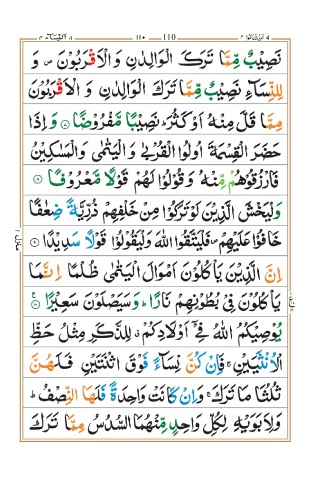 النسآء ٤
١١٠
لن تنالوا ٤
نَصِيْبٌ مِّمَّا تَرَكَ الْوَالِدٰنِ وَالْاَقْرَبُوْنَ ۪ وَ
لِلنِّسَآءِ نَصِيْبٌ مِّمَّا تَرَكَ الْوَالِدٰنِ وَالْاَقْرَبُوْنَ
مِمَّا قَلَّ مِنْهُ اَوْ كَثُرَ ؕ نَصِيْبًا مَّفْرُوْضًا ۷ وَاِذَا
حَضَرَ الْقِسْمَةَ اُولُوا الْقُرْبٰى وَالْيَتٰمٰى وَالْمَسٰكِيْنُ
فَارْزُقُوْهُمْ مِّنْهُ وَقُوْلُوْا لَهُمْ قَوْلًا مَّعْرُوْفًا ۸
وَلْيَخْشَ الَّذِيْنَ لَوْ تَرَكُوْا مِنْ خَلْفِهِمْ ذُرِّيَّةً ضِعٰفًا
خَافُوْا عَلَيْهِمْ ۪ فَلْيَتَّقُوا اللّٰهَ وَلْيَقُوْلُوْا قَوْلًا سَدِيْدًا ۹
اِنَّ الَّذِيْنَ يَاْكُلُوْنَ اَمْوَالَ الْيَتٰمٰى ظُلْمًا اِنَّمَا
يَاْكُلُوْنَ فِىْ بُطُوْنِهِمْ نَارًا ؕ وَسَيَصْلَوْنَ سَعِيْرًا ۱۰
يُوْصِيْكُمُ اللّٰهُ فِىْۤ اَوْلَادِكُمْ ۗ لِلذَّكَرِ مِثْلُ حَظِّ
الْاُنْثَيَيْنِ ۚ فَاِنْ كُنَّ نِسَآءً فَوْقَ اثْنَتَيْنِ فَلَهُنَّ
ثُلُثَا مَا تَرَكَ ۚ وَاِنْ كَانَتْ وَاحِدَةً فَلَهَا النِّصْفُ ؕ
وَلِاَبَوَيْهِ لِكُلِّ وَاحِدٍ مِّنْهُمَا السُّدُسُ مِمَّا تَرَكَ